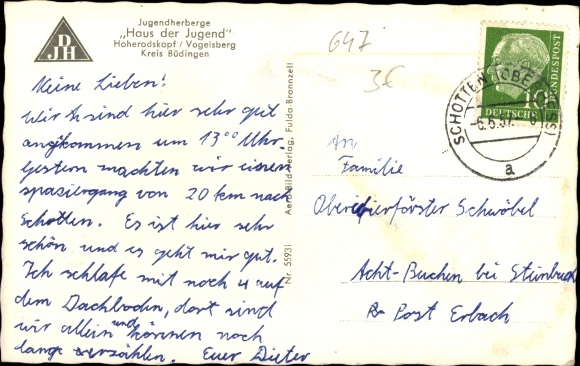 DJH
Jugendherberge
„Haus der Jugend"
Hoherodskopf / Vogelsberg
Kreis Büdingen
Meine Lieben!
Wir sind hier sehr gut
angekommen um 13⁰⁰ Uhr.
Gestern machten wir einen
spaziergang von 20 km nach
Schotten. Es ist hier sehr
schön und es geht mir gut.
Ich schlafe mit noch 4 auf
dem Dachboden, dort sind
wir allein und können noch
lange erzählen. Euer Dieter
Nr. 55931 Aero-Bild-Verlag, Fulda-Bronnzell
647
3€
DEUTSCHE BUNDESPOST
10
SCHOTTEN (OBERHESS)
-6.5.57.
a
An
Familie
Oberrevierförster Schwöbel
Acht-Buchen bei Steinbuch
Post Erbach